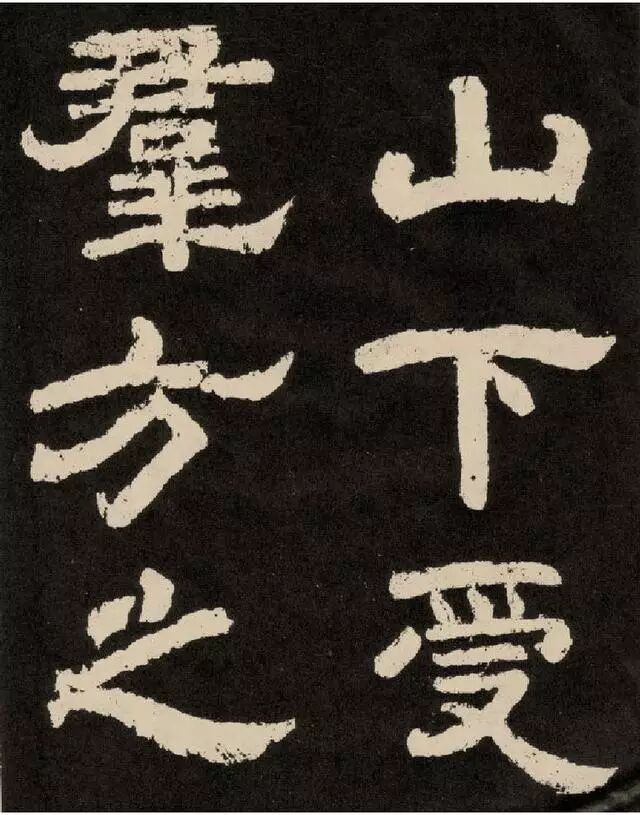 山下受
羣方之